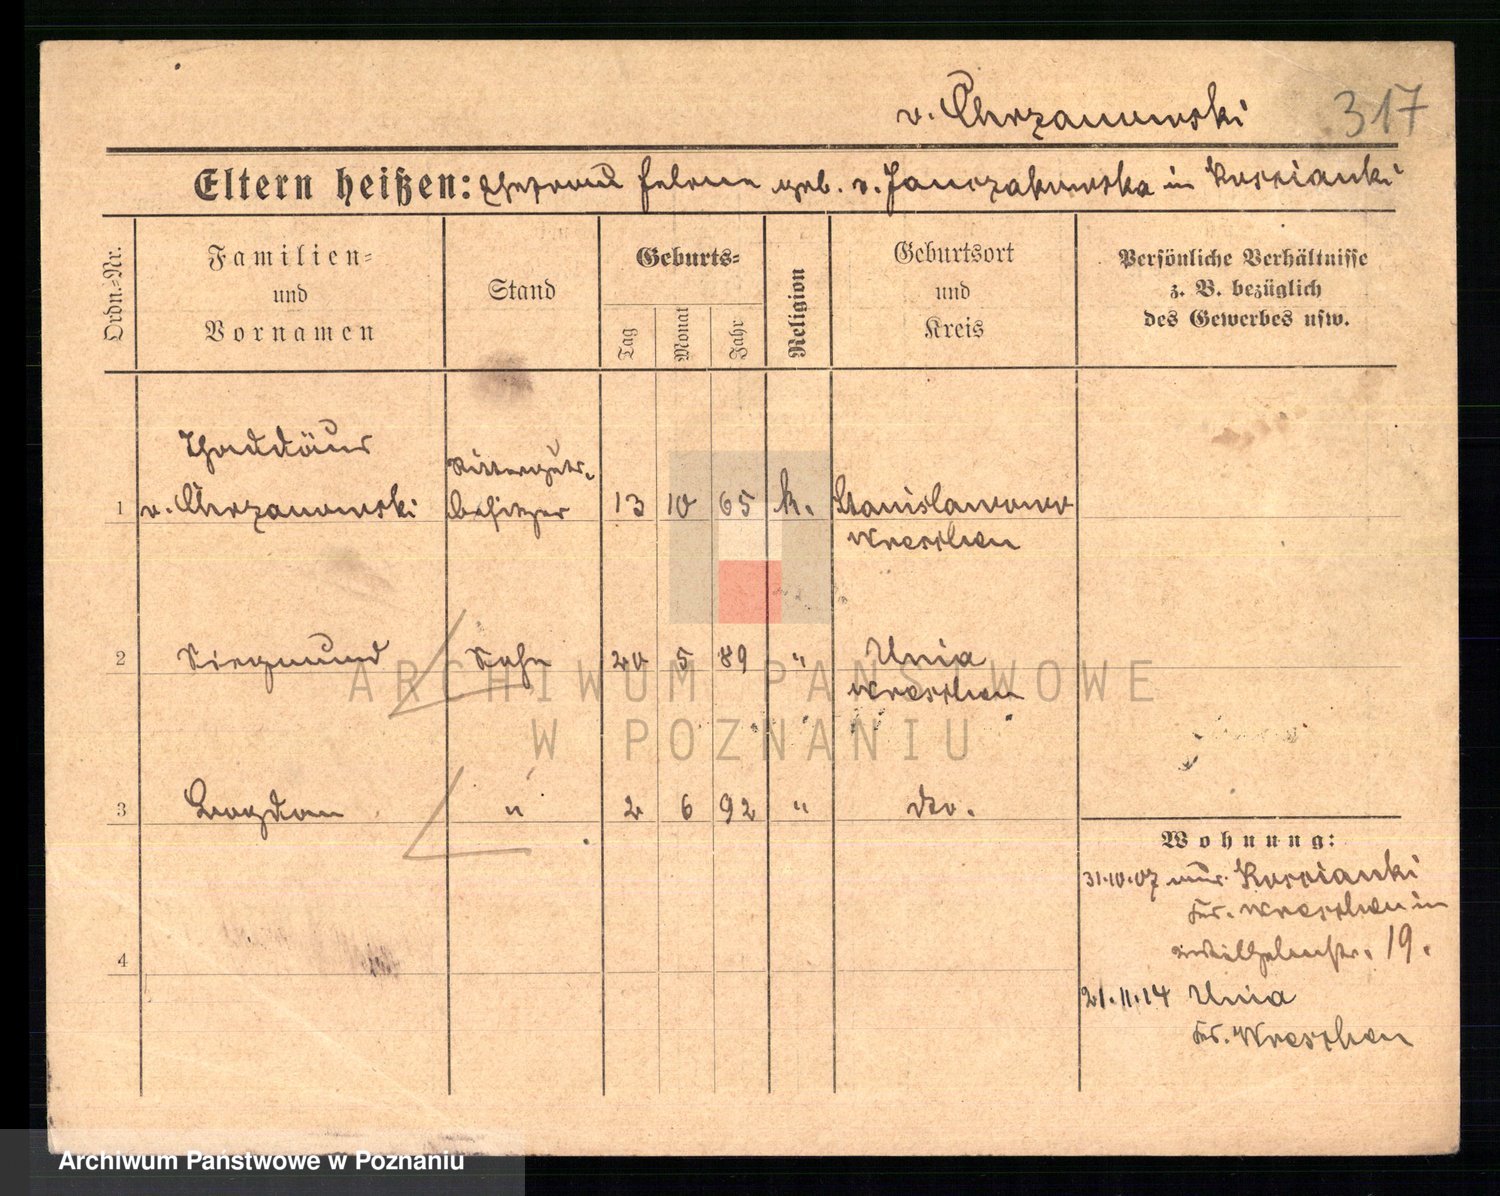 v. Chrzanowski 317
Eltern heißen: Ehefrau Helene geb. v. Janczakowska in Russianki
Ordn.-Nr.
Familien-
und
Vornamen
Stand
Geburts-
Tag
Monat
Jahr
Religion
Geburtsort
und
Kreis
Persönliche Verhältnisse
z. B. bezüglich
des Gewerbes usw.
Thaddäus Ritterguts-
1 v. Chrzanowski besitzer 13 10 65 k. Stanislawowo
Wreschen
2 Siegmund Sohn 20 5 89 " Unia
Wreschen
3 Bogdan " 2 6 92 " do.
Wohnung:
31.10.07 Russianki
Kr. Wreschen in
Wilhelmstr. 19.
4
21.11.14 Unia
Kr. Wreschen
ARCHIWUM PAŃSTWOWE
W POZNANIU
Archiwum Państwowe w Poznaniu